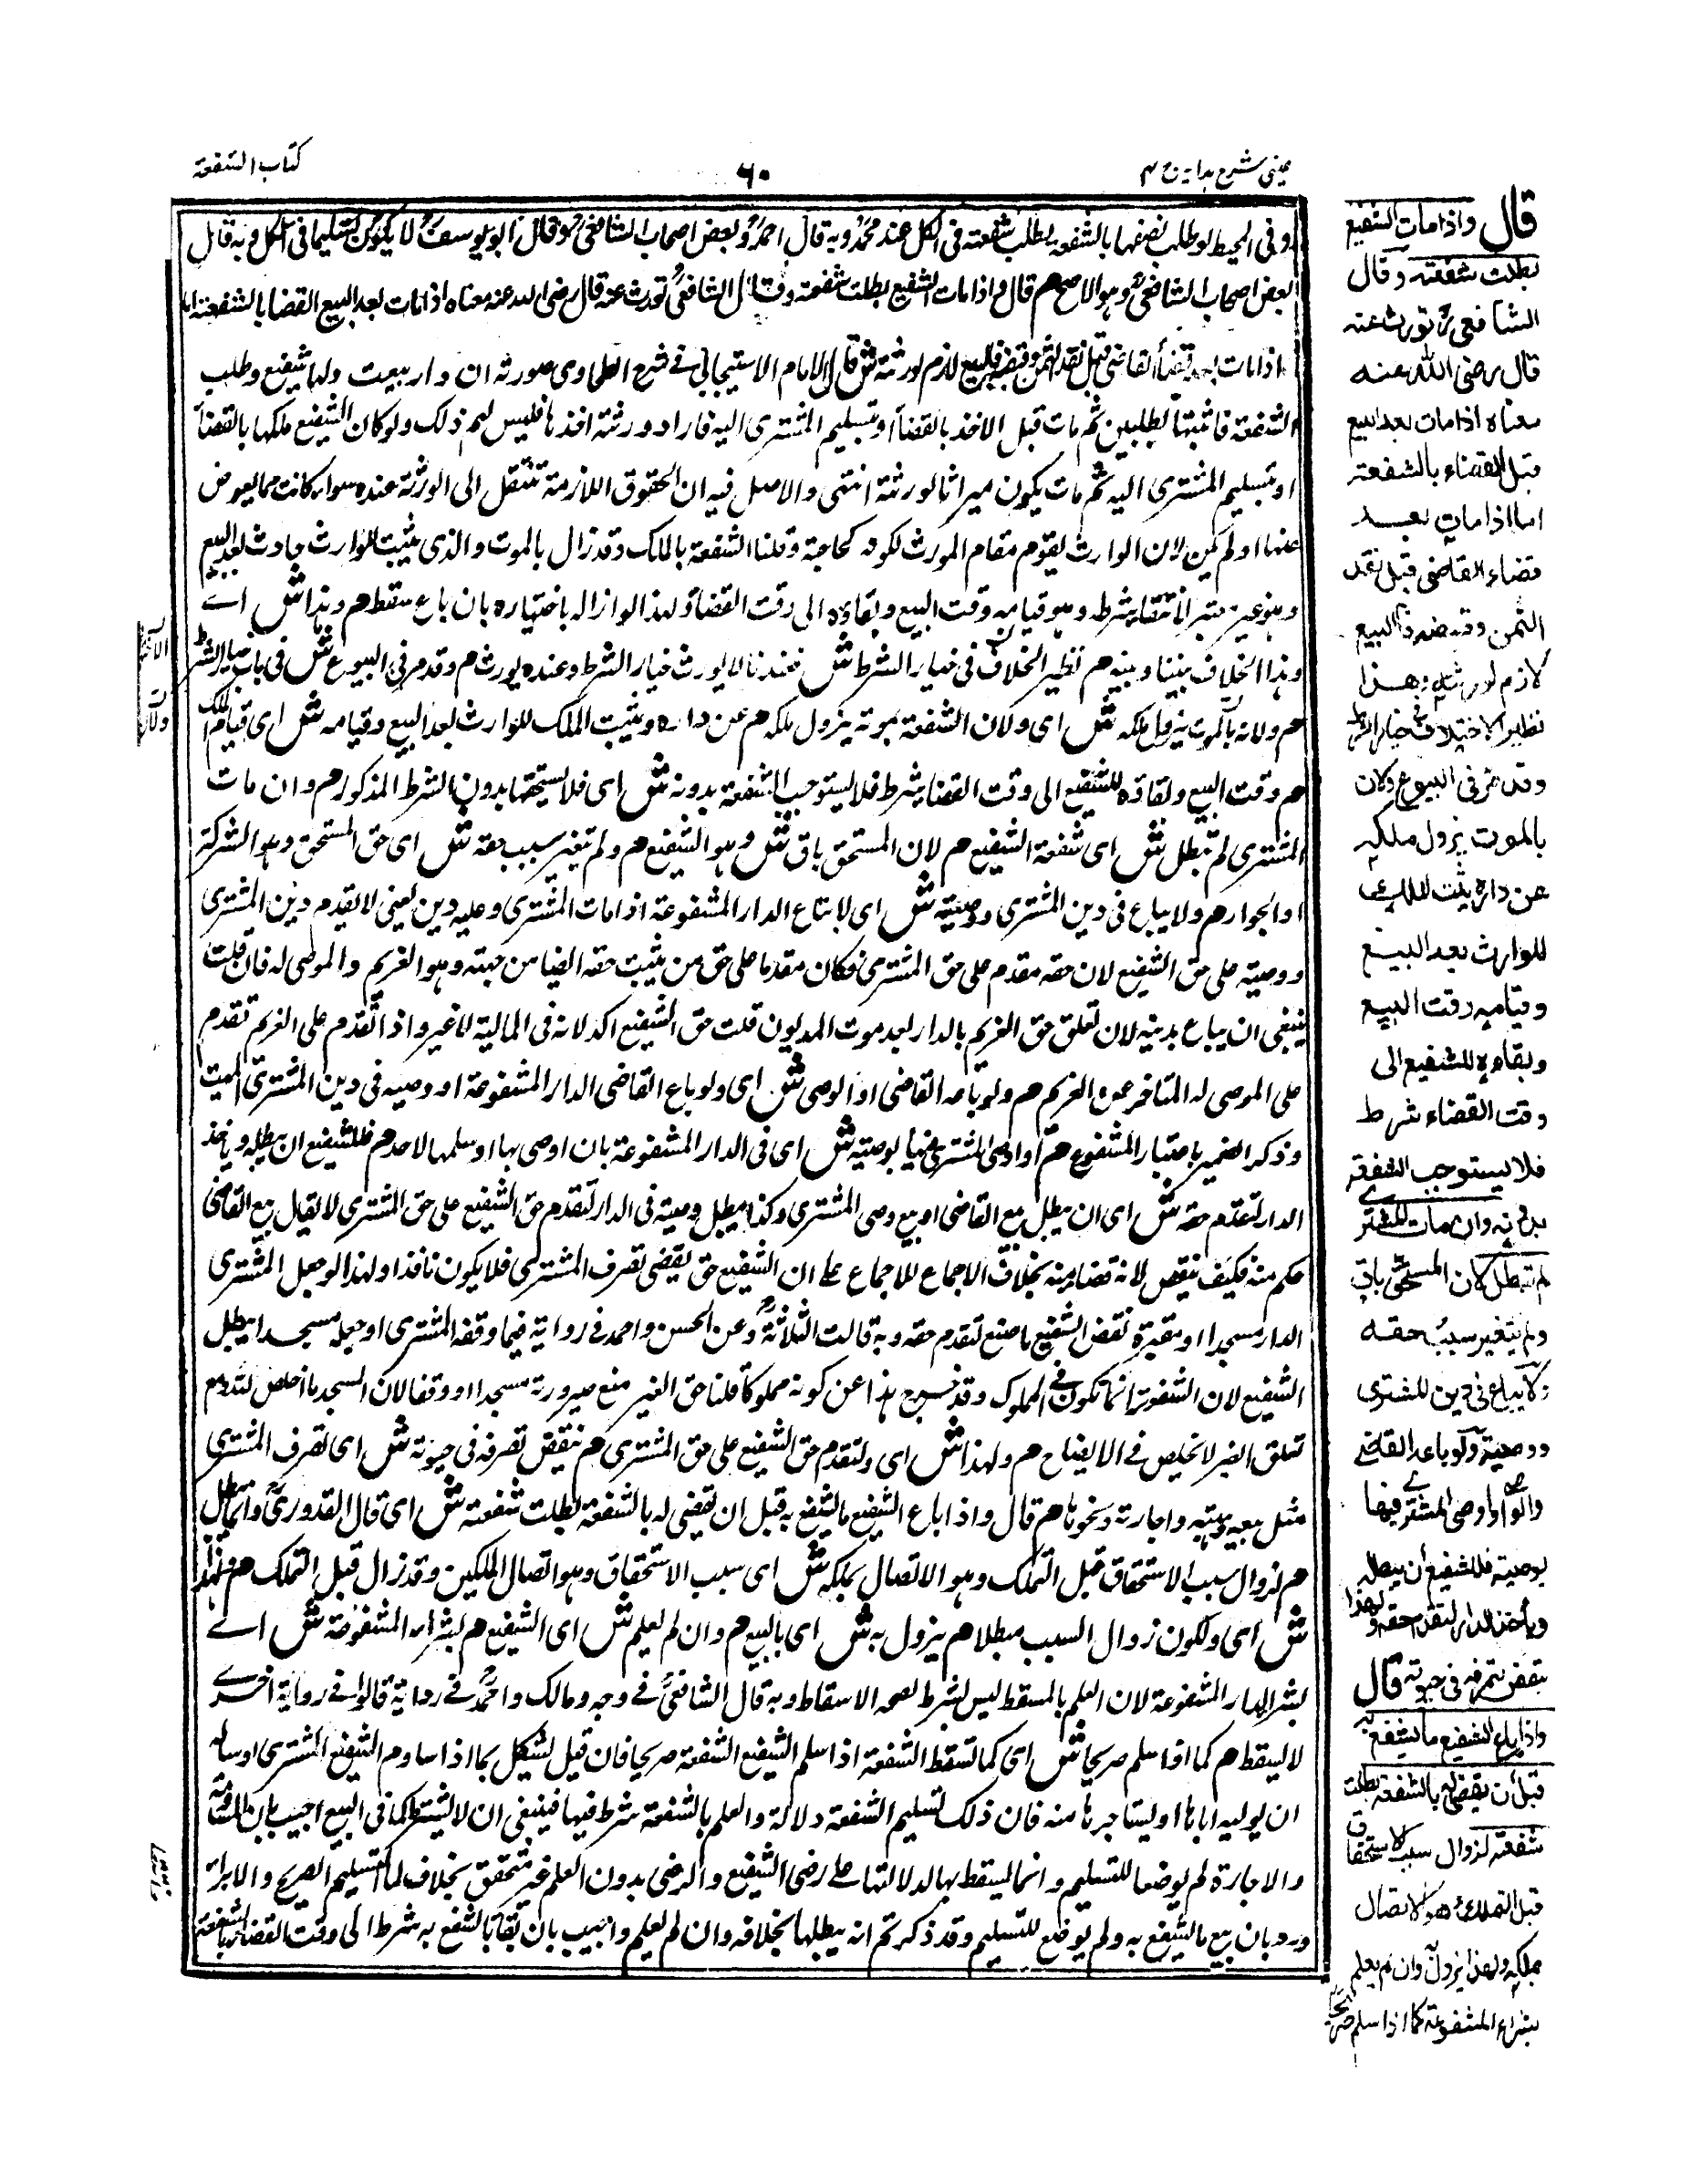 عینی شرح ہدایہ ج ۴
۶۰
کتاب الشفعة
وفی المحیط لو طلب نصفها بالشفعة بطلت شفعته فی الکل عند محمدؒ وبه قال احمدؒ وبعض اصحاب الشافعیؒ وقال ابو یوسفؒ لا یکون تسلیما فی الکل وبه قال
بعض اصحاب الشافعیؒ وهو الاصح هم قال واذا مات الشفیع بطلت شفعته وقال الشافعیؒ تورث عنه قال رضی الله عنه معناه اذا مات بعد البیع القضا بالشفعة اما
اذا مات بعد قضاء القاضی قبل نقد الثمن وقبضه فالبیع لازم لورثته ش قال الامام الاسبیجابی فی شرح الطحاوی صورته ان دار بیعت ولها شفیع وطلب
الشفعة فاثبتها بطلبین ثم مات قبل الاخذ بالقضاء او تسلیم المشتری الیه فاراد ورثته اخذها فلیس لهم ذلک ولو کان الشفیع ملکها بالقضاء
او تسلیم المشتری الیه ثم مات یکون میراثا لورثته انتهی والاصل فیه ان الحقوق اللازمة تنتقل الی الورثة عنده سواء کانت مما یعوض
عنها او لم یکن لان الوارث یقوم مقام المورث لکونه کحاجته وقلنا الشفعة بالملک وقد زال بالموت والذی یثبت للوارث حادث بعد البیع
وهو غیر معتبر انتقاء بشرط وهو قیامه وقت البیع وبقاؤه الی وقت القضاء ولهذا لو ازاله باختیاره بان باع سقط هم وهذا ش ای
وهذا الخلاف بیننا وبینه هم نظیر الخلاف فی خیار الشرط ش فعندنا لا یورث خیار الشرط وعنده یورث هم وقد مر فی البیوع ش فی باب خیار الشرط
هم ولانه بالموت یزول ملکه ش ای ولان الشفعة بموته یزول ملکه هم عن داره ویثبت الملک للوارث بعد البیع وقیامه ش ای قیام الملک
هم وقت البیع وبقاؤه للشفیع الی وقت القضاء شرط فلا یستوجب الشفعة بدونه ش ای فلا یستحقها بدون الشرط المذکور هم وان مات
المشتری لم تبطل ش ای شفعة الشفیع هم لان المستحق باق ش وهو الشفیع هم ولم یتغیر سبب حقه ش ای حق المستحق وهو الشرکة
او الجوار هم ولا یباع فی دین المشتری ووصیته ش ای لا تباع الدار المشفوعة اذا مات المشتری وعلیه دین یعنی لا یقدم دین المشتری
ووصیته علی حق الشفیع لان حقه مقدم علی حق المشتری فکان مقدما علی حق من یثبت حقه ایضا من جهته وهو الغریم والموصی له فان قلت
ینبغی ان یباع بدینه لان تعلق حق الغریم بالدار بعد موت المدیون قلت حق الشفیع اکد لانه فی المالیة لا غیر واذا تقدم علی الغریم تقدم
علی الموصی له المتاخر عن الغریم هم ولو باعه القاضی او الوصی ش ای ولو باع القاضی الدار المشفوعة او وصیه فی دین المشتری المیت
وذکر الضمیر باعتبار المشفوع هم او اوصی المشتری فیها بوصیة ش ای فی الدار المشفوعة بان اوصی بها او سلمها لاحد هم فللشفیع ان یبطله ویاخذ
الدار لتقدم حقه ش ای ان یبطل بیع القاضی او بیع وصی المشتری وکذا یبطل وصیته فی الدار لتقدم حق الشفیع علی حق المشتری لا یقال بیع القاضی
حکم منه فکیف ینقض لانه قضاء منه بخلاف الاجماع للاجماع علی ان الشفیع حق ینقض تصرف المشتری فلا یکون نافذا ولهذا لو جعل المشتری
الدار مسجدا او مقبرة نقض الشفیع ما صنع لتقدم حقه وبه قالت الثلاثةؒ وعن الحسن واحمد فی روایة فیما وقفه المشتری او جعله مسجدا یبطل
الشفیع لان الشفعة انما تکون فی المملوک وقد خرج هذا عن کونه مملوکا قلنا حق الغیر منع صیرورته مسجدا او وقفا لان المسجد ما اخلص لله ومع
تعلق الغیر لا تخلیص فی الایضاح هم ولهذا ش ای ولتقدم حق الشفیع علی حق المشتری هم ینقض تصرفه فی حیوته ش ای تصرف المشتری
مثل بیعه وهبته واجارته ونحوها هم قال واذا باع الشفیع ما یشفع به قبل ان یقضی له بالشفعة بطلت شفعته ش ای قال القدوریؒ وانما تبطل
هم لزوال سبب الاستحقاق قبل التملک وهو الاتصال بملکه ش ای سبب الاستحقاق وهو اتصال الملکین وقد زال قبل التملک هم ولهذا
ش ای ولکون زوال السبب مبطلا هم یزول به ش ای بالبیع هم وان لم یعلم ش ای الشفیع هم بشراء المشفوعة ش ای
بشراء الدار المشفوعة لان العلم بالمسقط لیس بشرط لصحة الاسقاط وبه قال الشافعیؒ فی وجه ومالک واحمدؒ فی روایة قالوا فی روایة اخری
لا یسقط هم کما اذا سلم صریحا ش ای کما تسقط الشفعة اذا سلم الشفیع الشفعة صریحا فان قیل یشکل بما اذا ساوم الشفیع المشتری او ساله
ان یولیه ایاها او یستاجرها منه فان ذلک تسلیم الشفعة دلالة والعلم بالشفعة شرط فیها فینبغی ان لا یشترط کما فی البیع اجیب بان المساومة
والاجارة لم یوضعا للتسلیم وانما یسقط بها لدلالتها علی رضی الشفیع والرضی بدون العلم غیر متحقق بخلاف التسلیم الصریح والابراء
ورد بان بیع ما یشفع به ولم یوضع للتسلیم وقد ذکرتم انه یبطلها بخلافه وان لم یعلم واجیب بان بقاء ما یشفع به شرط الی وقت القضاء بالشفعة
قال واذا مات الشفیع
بطلت شفعته وقال
الشافعیؒ تورث عنه
قال رضی الله عنه
معناه اذا مات بعد البیع
قبل القضاء بالشفعة
اما اذا مات بعد
قضاء القاضی قبل نقد
الثمن وقبضه فالبیع
لازم لورثته وهذا
نظیر الاختلاف فی خیار الشرط
وقد مر فی البیوع ولان
بالموت یزول ملکه
عن داره ویثبت الملک
للوارث بعد البیع
وقیامه وقت البیع
وبقاءه للشفیع الی
وقت القضاء شرط
فلا یستوجب الشفعة
بدونه وان مات المشتری
لم تبطل لان المستحق باق
ولم یتغیر سبب حقه
ولا یباع فی دین المشتری
ووصیته ولو باعه القاضی
والوصی او اوصی المشتری فیها
بوصیة فللشفیع ان یبطله
ویاخذ الدار لتقدم حقه ولهذا
ینقض تصرفه فی حیوته قال
واذا باع الشفیع ما یشفع به
قبل ان یقضی له بالشفعة بطلت
شفعته لزوال سبب الاستحقاق
قبل التملک وهو الاتصال
بملکه ولهذا یزول به وان لم یعلم
بشراء المشفوعة کما اذا سلم صریحا